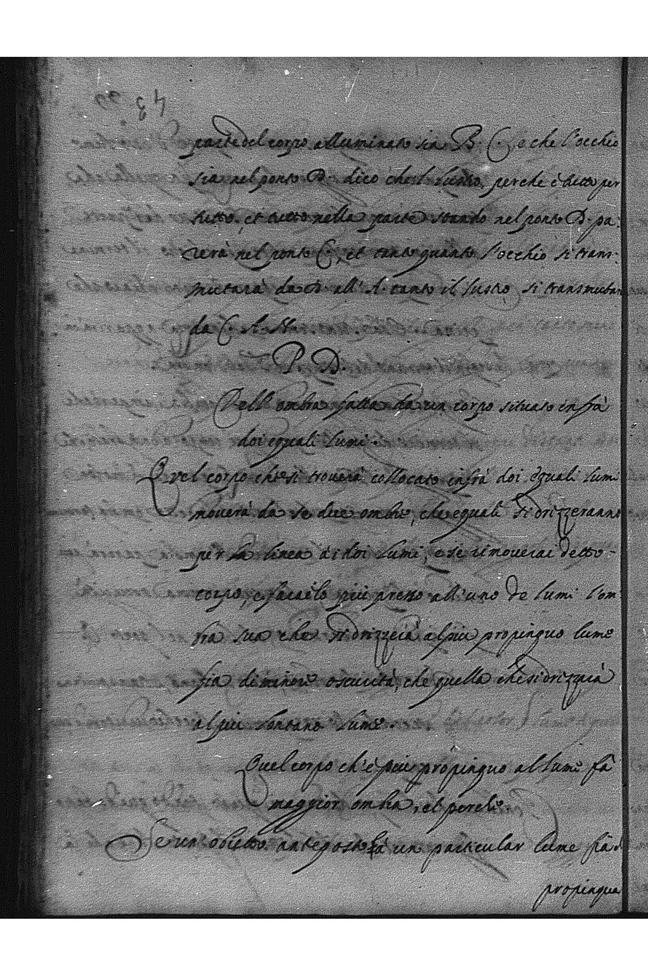 parte del corpo alluminato sia B. C. o che l'occhio
sia nel ponto D. dico che'l lustro, perche è tutto per
tutto, et tutto nella parte stando nel ponto D. pa-
rerà nel ponto C, et tanto quanto l'occhio si trans-
mutarà da D. all'A. tanto il lustro si transmuta
da C. A. N.
P. D.
Dell'ombra fatta da un corpo situato infrà
doi equali lumi.
Quel corpo che si troverà collocato infrà doi equali lumi
moverà da se due ombre, che equali si drizzeranno
per la linea di doi lumi, e se rimoverai detto
corpo, e farailo più presso all'uno de lumi l'om-
bra sua che si drizzerà al più propinquo lume
fia di minore oscurità, che quella che si drizzerà
al più lontano lume
Quel corpo ch'è più propinquo al lume fà
maggior ombra, et perche
Se un'obietto anteposto à un particular lume fia
propinquo